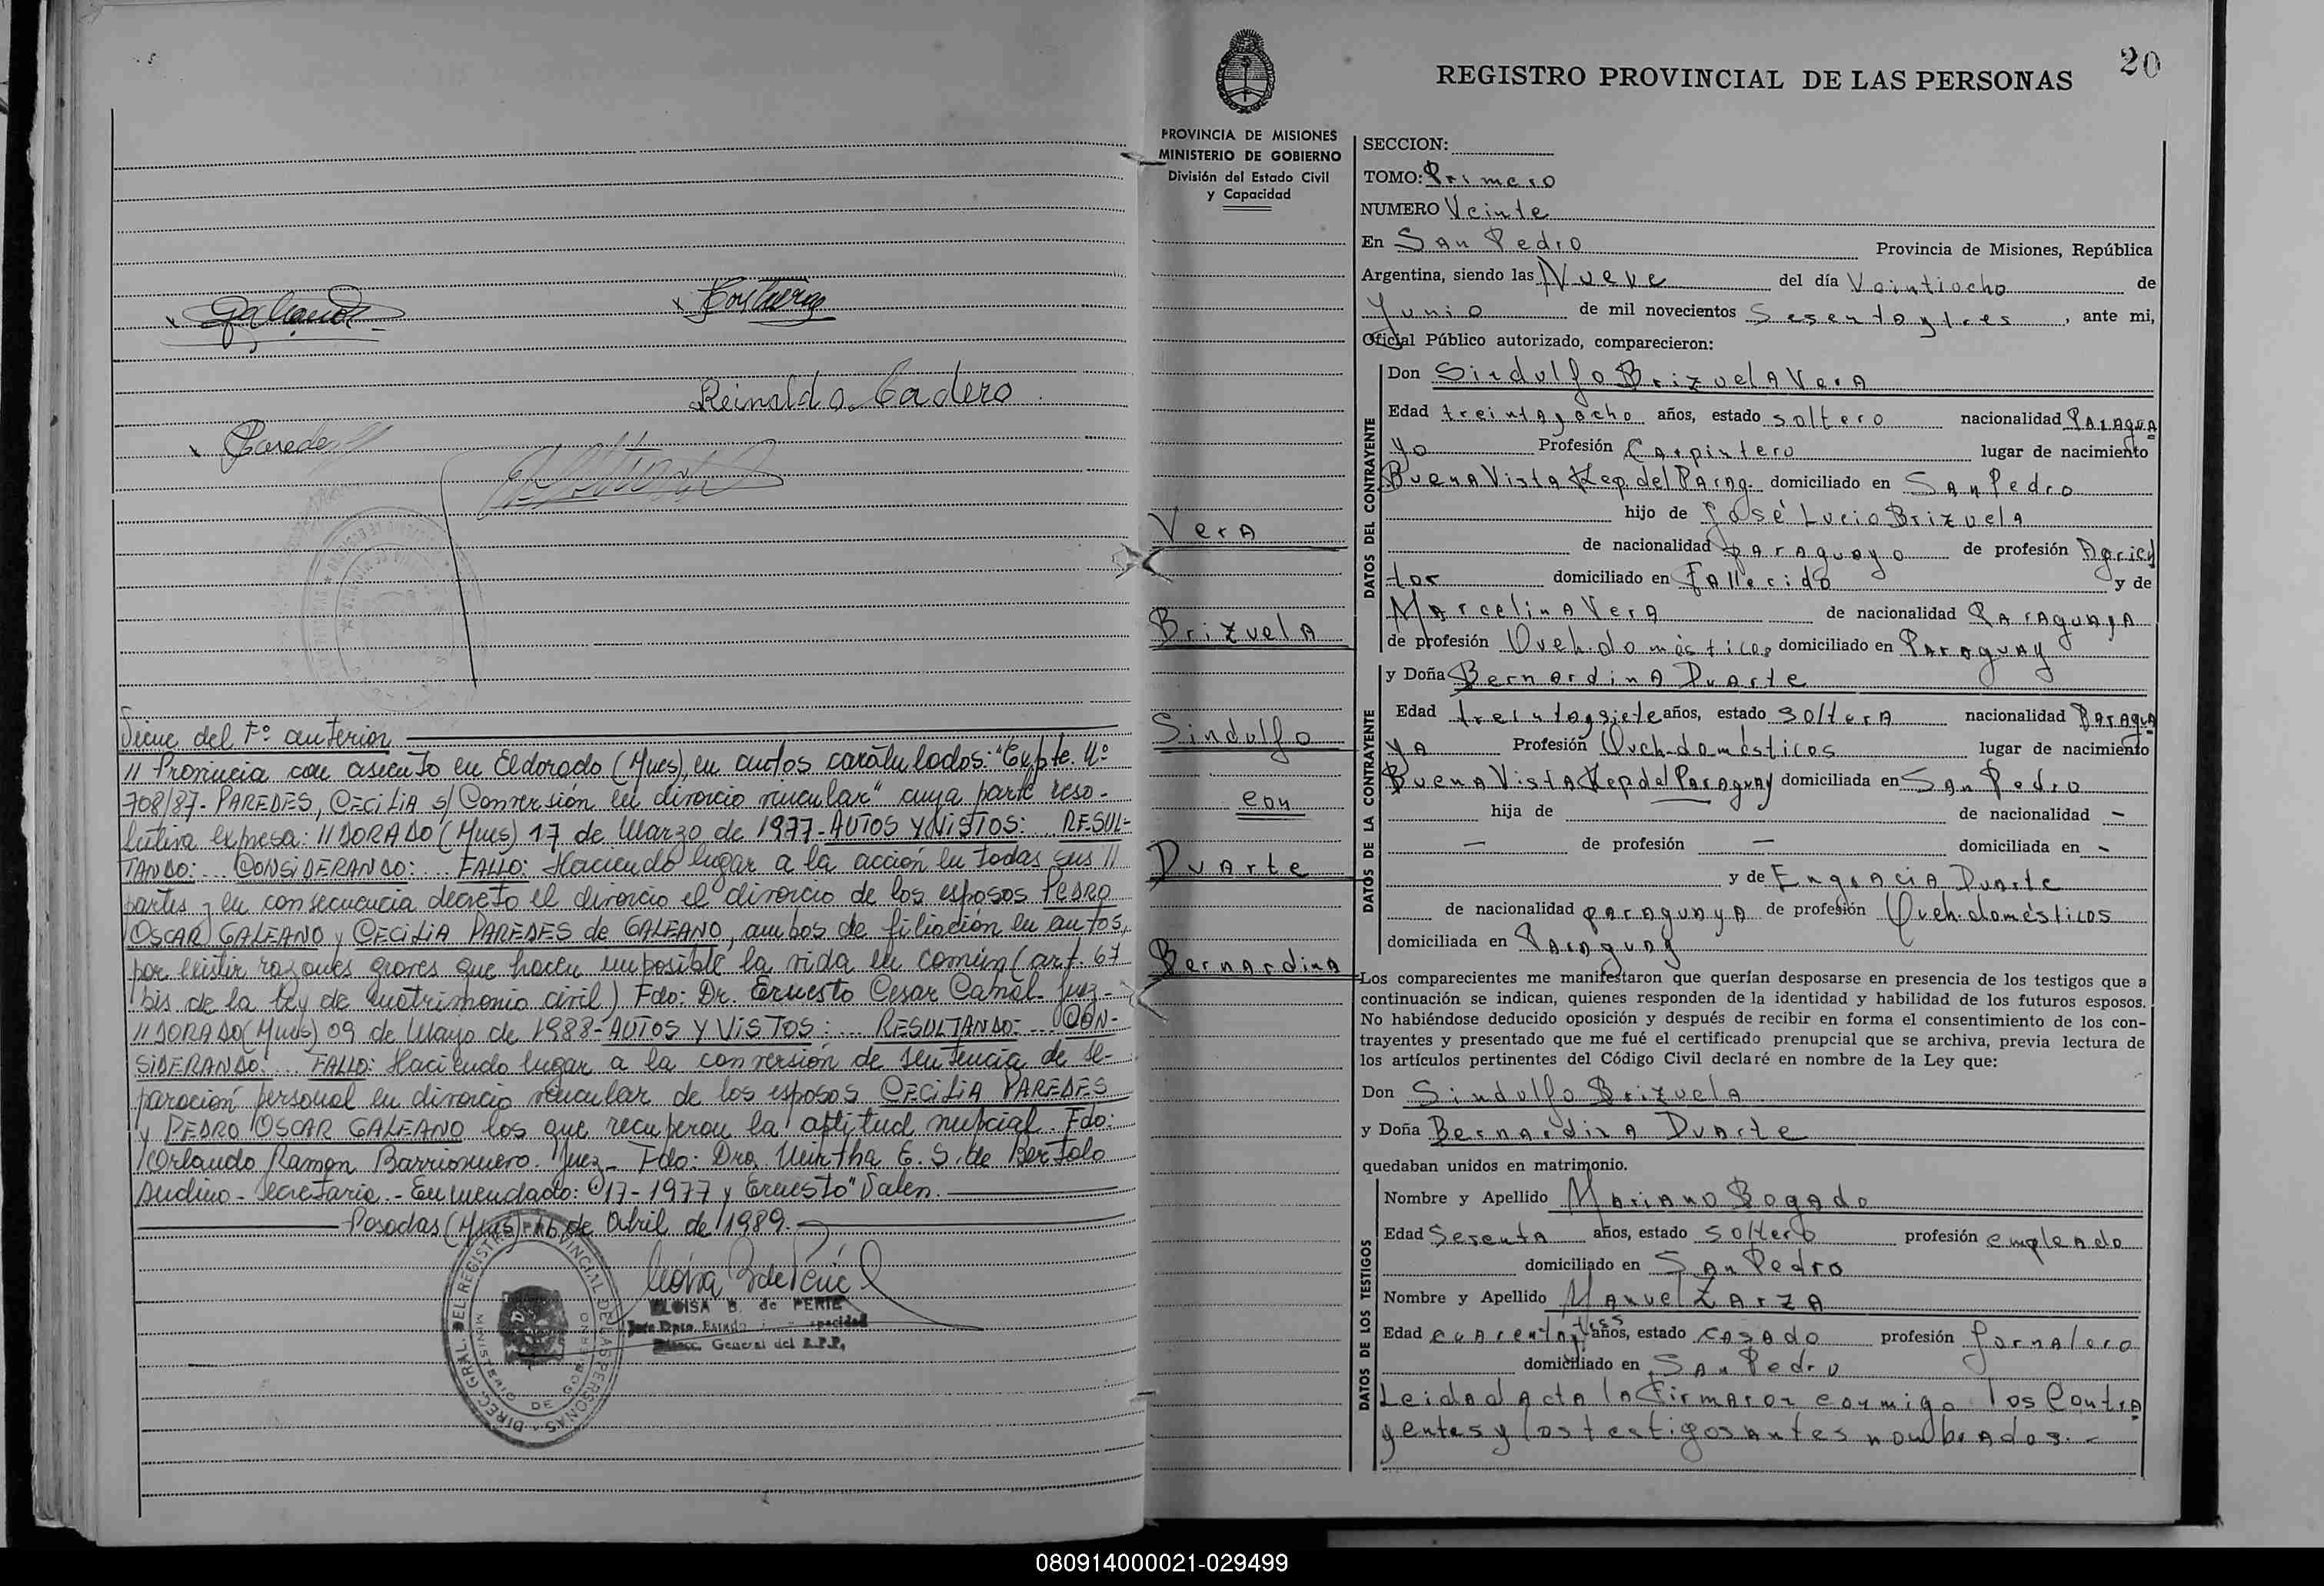 Reinaldo Cadero
Paredes
Viene del Fº anterior
// Provincia con asiento en Eldorado (Mnes), en autos caratulados: "Expte. Nº
708/87- PAREDES, CECILIA s/ Conversión en divorcio vincular" cuya parte reso-
lutiva expresa: //DORADO (Mnes) 17 de Marzo de 1977- AUTOS Y VISTOS: ... RESUL-
TANDO: ... CONSIDERANDO: ... FALLO: Haciendo lugar a la acción en todas sus //
partes y en consecuencia decreto el divorcio el divorcio de los esposos PEDRO
OSCAR GALEANO y CECILIA PAREDES de GALEANO, ambos de filiación en autos,
por existir razones graves que hacen imposible la vida en común (art. 67
bis de la Ley de matrimonio civil) Fdo: Dr. Ernesto Cesar Canal- Juez-
//DORADO (Mnes) 09 de Mayo de 1988- AUTOS Y VISTOS: ... RESULTANDO: ... CON-
SIDERANDO: ... FALLO: Haciendo lugar a la conversión de sentencia de se-
paración personal en divorcio vincular de los esposos CECILIA PAREDES
y PEDRO OSCAR GALEANO los que recuperan la aptitud nupcial. Fdo:
Orlando Ramon Barrionuevo. Juez- Fdo: Dra. Mirtha E. S. de Bertolo
Andino- Secretaria.- Enmendado: "17- 1977 y Ernesto" Valen.
Posadas (Mnes) 26 de Abril de 1989.-
ELOISA B. de PERIE
Jefe Dpto. Estado
Direcc. General del R.P.P.
DIREC. GRAL. DEL REGISTRO PROVINCIAL DE LAS PERSONAS
MINISTERIO DE GOBIERNO
20
REGISTRO PROVINCIAL DE LAS PERSONAS
PROVINCIA DE MISIONES
MINISTERIO DE GOBIERNO
División del Estado Civil
y Capacidad
Vera
Brizuela
Sindulfo
con
Duarte
Bernardina
SECCION:
TOMO: Primero
NUMERO Veinte
En San Pedro Provincia de Misiones, República
Argentina, siendo las Nueve del día Veintiocho de
Junio de mil novecientos Sesentaytres, ante mi,
Oficial Público autorizado, comparecieron:
DATOS DEL CONTRAYENTE
Don Sindulfo Brizuela Vera
Edad treintayocho años, estado soltero nacionalidad Paragua
yo Profesión Carpintero lugar de nacimiento
Buena Vista Rep. del Parag. domiciliado en San Pedro
hijo de José Lucio Brizuela
de nacionalidad paraguayo de profesión Agricul
tor domiciliado en Fallecido y de
Marcelina Vera de nacionalidad Paraguaya
de profesión Queh. domésticos domiciliado en Paraguay
DATOS DE LA CONTRAYENTE
y Doña Bernardina Duarte
Edad treintaysiete años, estado soltera nacionalidad Paragua
ya Profesión Queh-domésticos lugar de nacimiento
Buena Vista Rep del Paraguay domiciliada en San Pedro
hija de de nacionalidad -
- de profesión - domiciliada en -
y de Engracia Duarte
de nacionalidad paraguaya de profesión Queh. domésticos
domiciliada en Paraguay
Los comparecientes me manifestaron que querían desposarse en presencia de los testigos que a
continuación se indican, quienes responden de la identidad y habilidad de los futuros esposos.
No habiéndose deducido oposición y después de recibir en forma el consentimiento de los con-
trayentes y presentado que me fué el certificado prenupcial que se archiva, previa lectura de
los artículos pertinentes del Código Civil declaré en nombre de la Ley que:
Don Sindulfo Brizuela
y Doña Bernardina Duarte
quedaban unidos en matrimonio.
DATOS DE LOS TESTIGOS
Nombre y Apellido Mariano Bogado
Edad Sesenta años, estado soltero profesión empleado
domiciliado en San Pedro
Nombre y Apellido Manuel Zarza
Edad cuarentaytres años, estado casado profesión Jornalero
domiciliado en San Pedro
Leida el Acta la Firmaron conmigo los Contra
yentes y los testigos antes nombrados.-
080914000021-029499